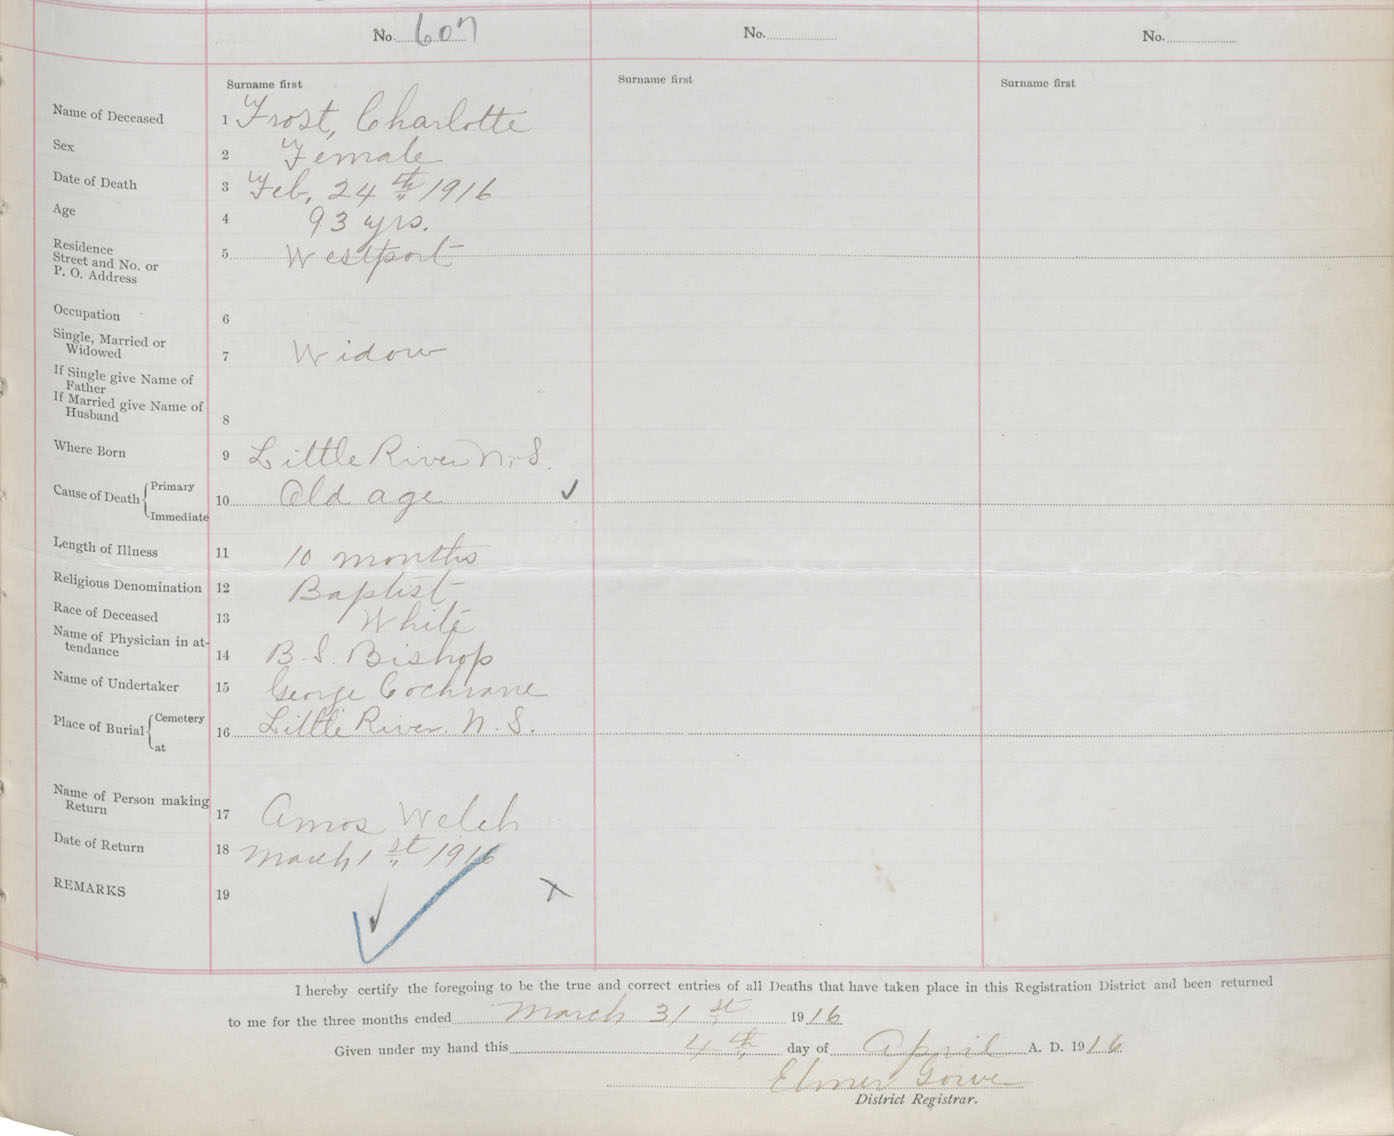 No. 607 No. No.
Surname first Surname first Surname first
Name of Deceased 1 Frost, Charlotte
Sex 2 Female
Date of Death 3 Feb, 24th 1916
Age 4 93 yrs.
Residence
Street and No. or
P. O. Address 5 Westport
Occupation 6
Single, Married or
Widowed 7 Widow
If Single give Name of
Father
If Married give Name of
Husband 8
Where Born 9 Little River N.S.
Cause of Death Primary 10 Old age
Immediate
Length of Illness 11 10 months
Religious Denomination 12 Baptist
Race of Deceased 13 White
Name of Physician in at-
tendance 14 B. S. Bishop
Name of Undertaker 15 George Cochrane
Place of Burial Cemetery 16 Little River. N. S.
at
Name of Person making
Return 17 Amos Welch
Date of Return 18 March 1st 1916
REMARKS 19
I hereby certify the foregoing to be the true and correct entries of all Deaths that have taken place in this Registration District and been returned
to me for the three months ended March 31st 1916
Given under my hand this 4th day of April A. D. 1916
Elmer Gower
District Registrar.